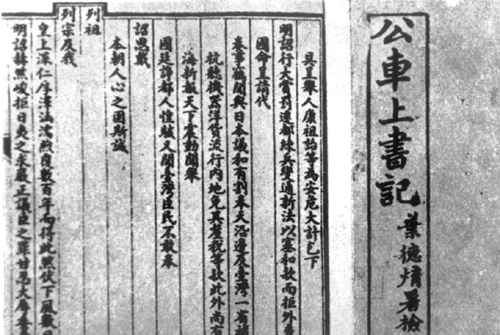 公車上書記
葉德署檢
具呈舉人康祖詒等為安危大計乞下
明詔行大賞罰遷都練兵變通新法以塞和款而拒外
國命呈請代
奏事竊聞與日本議和有割奉天沿邊及臺灣一省
杭聽機器洋貨流行內地免其釐稅等款此外尚有
海新報天下震動聞舉
國廷諍都人惶駭又聞臺灣臣民不敢奉
詔思戴
本朝人心之固斯誠
列祖
列宗及我
皇上深仁厚澤涵濡煦育數百年而得此然伏下風數
明詔赫然峻拒日夷之求嚴正議臣之罪甘忍大辱委